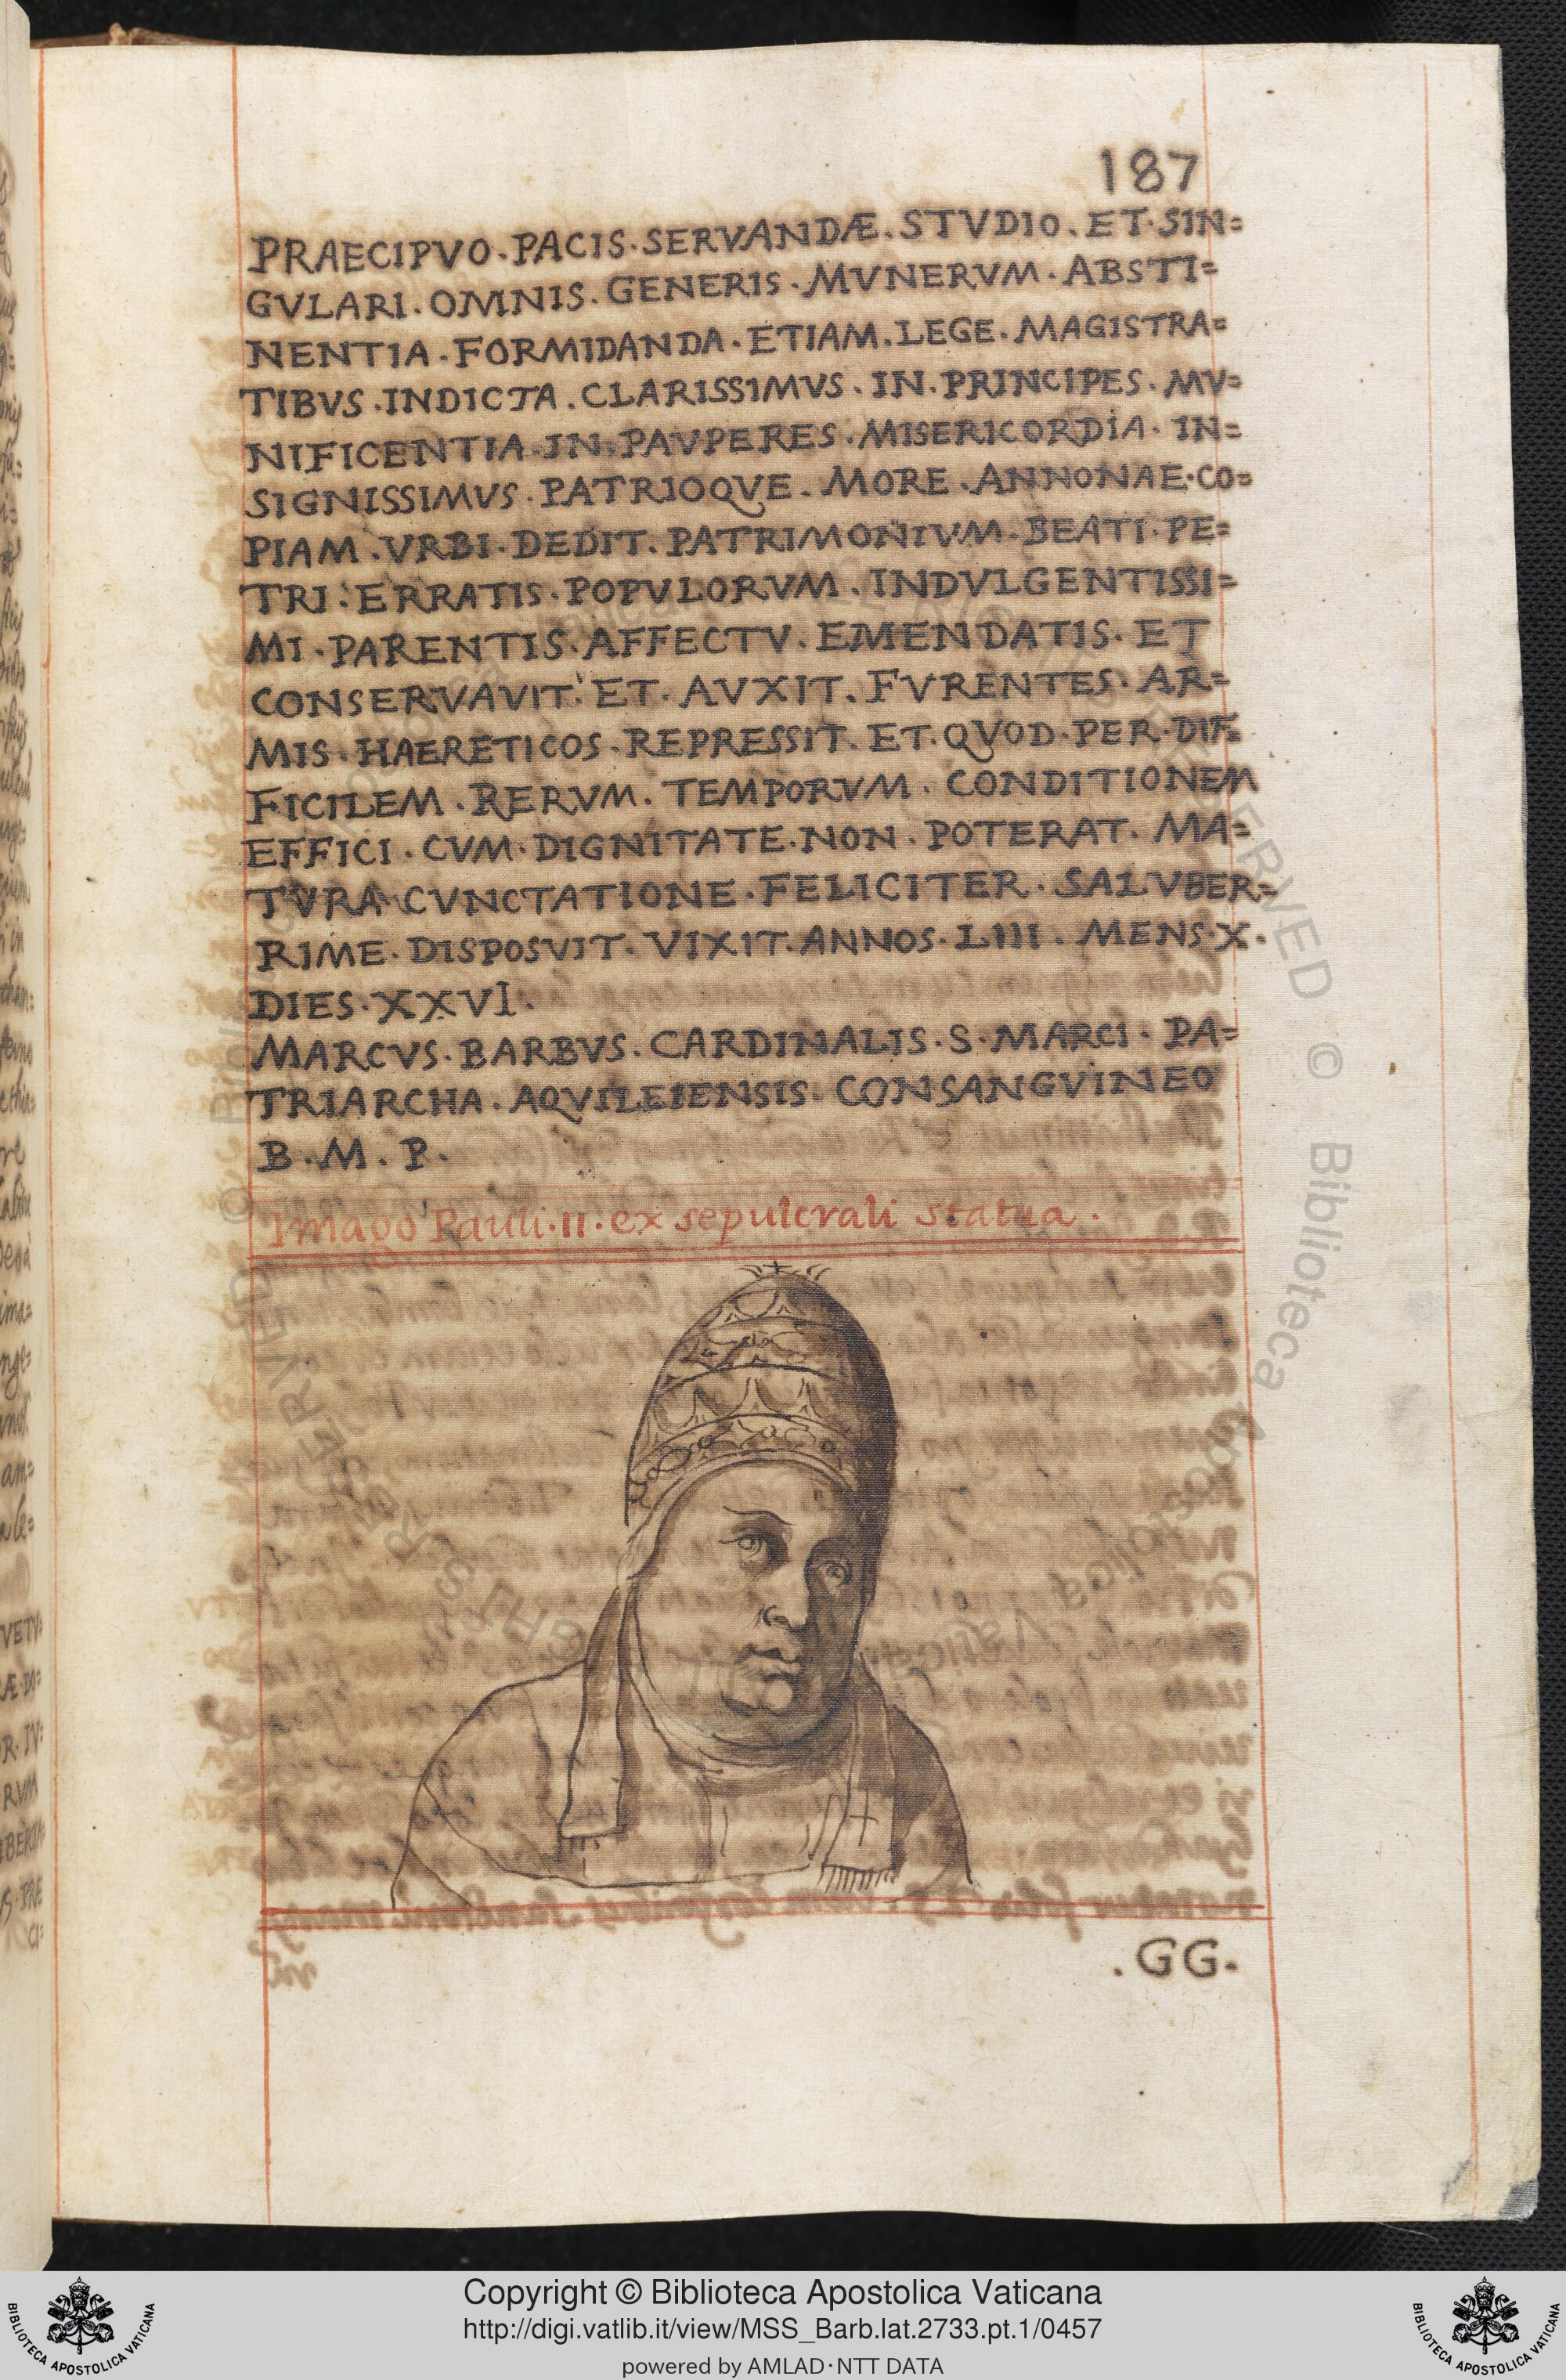 187
PRAECIPVO·PACIS·SERVANDÆ·STVDIO·ET·SIN=
GVLARI·OMNIS·GENERIS·MVNERVM·ABSTI=
NENTIA·FORMIDANDA·ETIAM·LEGE·MAGISTRA=
TIBVS·INDICTA·CLARISSIMVS·IN·PRINCIPES·MV=
NIFICENTIA·IN·PAVPERES·MISERICORDIA·IN=
SIGNISSIMVS·PATRIOQVE·MORE·ANNONAE·CO=
PIAM·VRBI·DEDIT·PATRIMONIVM·BEATI·PE=
TRI·ERRATIS·POPVLORVM·INDVLGENTISSI=
MI·PARENTIS·AFFECTV·EMENDATIS·ET
CONSERVAVIT·ET·AVXIT·FVRENTES·AR=
MIS·HAERETICOS·REPRESSIT·ET·QVOD·PER·DIF=
FICILEM·RERVM·TEMPORVM·CONDITIONEM
EFFICI·CVM·DIGNITATE·NON·POTERAT·MA=
TVRA CVNCTATIONE·FELICITER·SALVBER=
RIME·DISPOSVIT·VIXIT·ANNOS·LIII·MENS·X·
DIES·XXVI·
MARCVS·BARBVS·CARDINALIS·S·MARCI·PA=
TRIARCHA·AQVILEIENSIS·CONSANGVINEO
B·M·P·
Imago Pauli·II·ex sepulcrali statua·
·GG·
Copyright © Biblioteca Apostolica Vaticana
http://digi.vatlib.it/view/MSS_Barb.lat.2733.pt.1/0457
powered by AMLAD·NTT DATA
BIBLIOTECA APOSTOLICA VATICANA
BIBLIOTECA APOSTOLICA VATICANA